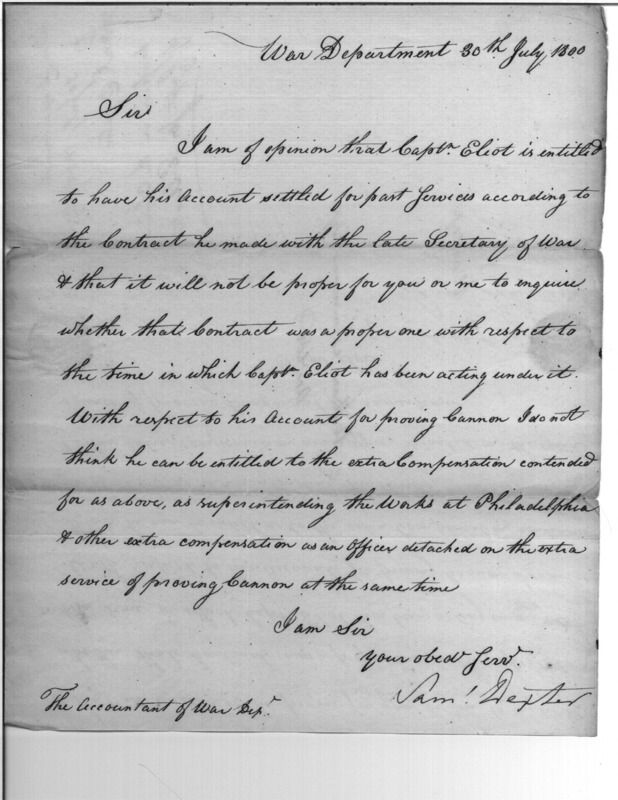 War Department 30th July, 1800
Sir
I am of opinion that Captn. Eliot is entitled
to have his Account settled for past Services according to
the Contract he made with the late Secretary of War
& that it will not be proper for you or me to enquire
whether that Contract was a proper one with respect to
the time in which Captn. Eliot has been acting under it.
With respect to his Accounts for proving Cannon I do not
think he can be entitled to the extra Compensation contended
for as above, as superintending the Works at Philadelphia
& other extra compensation as an Officer detached on the extra
service of proving Cannon at the same time
I am Sir
your obedt. Servt.
Saml. Dexter
The Accountant of War Dept.